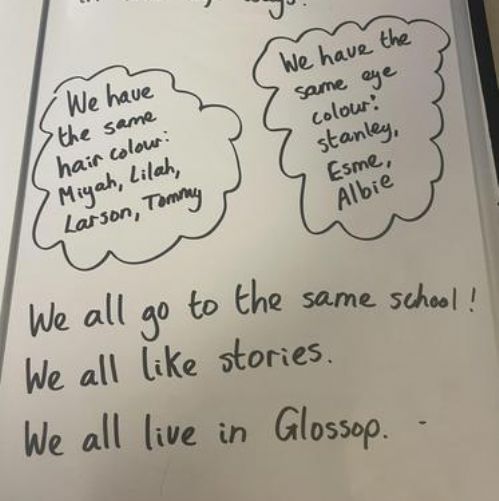 We have
the same
hair colour:
Miyah, Lilah,
Larson, Tommy
We have the
same eye
colour:
stanley,
Esme,
Albie
We all go to the same school!
We all like stories.
We all live in Glossop. -